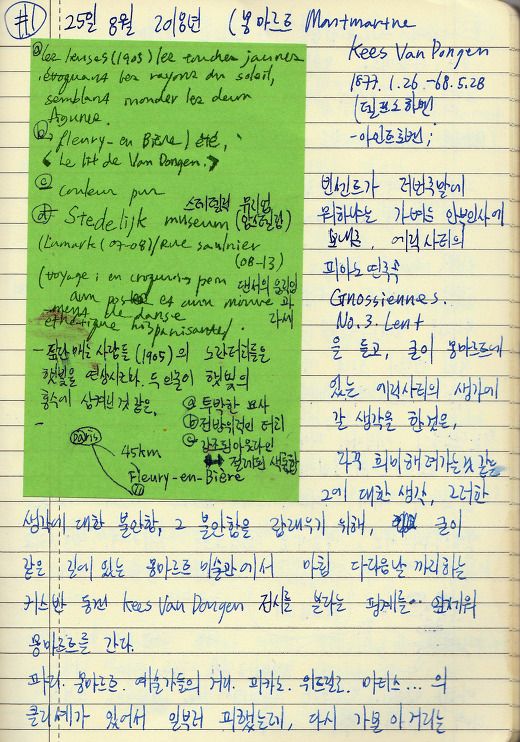 #1 25일 8월 2018년 (몽마르트 Montmartre
Kees Van Dongen
1877.1.26 -68.5.28
(델프스하펜
ⓐ Les lieuses (1905) les touches jaunes
évoquant les rayons du soleil,
semblant inonder les deux
figures.
ⓑ Fleury-en Bière) été,
< Le lit de Van Dongen. >
ⓒ couleur pur
ⓓ Stedelijk museum 스테델릭 뮤지엄 (암스테르담)
(Lamark (07-08) / Rue saulnier
(08-13)
(voyage; en
de danse
hispanisante).
(1905)의 노란터리들은
햇빛을 연상시킨다. 두 인물이 햇빛의
홍수에 삼켜진 것 같은,
ⓐ 투박한 묘사
ⓑ 전방위적인 터치
ⓒ 강조된 아웃라인
↔ 절제된 색
Paris
45km
Fleury-en-Bière
빈센트가
뭐하냐는 가벼운 안부인사에
에릭 사티의
피아노 연주곡
Gnossiennes.
No.3. Lent
을 듣고, 몽마르트에
있는 에릭사티의 생가에
갈 생각을 한 것은,
자꾸 희미해져가는 것 같은
그에 대한 생각, 그러한
생각에 대한 불안함, 그 불안함을 달래우기 위해,
같은 길에 있는 몽마르트 미술관에서 마침 다다음날까지하는
키스 반 동겐 Kees Van Dongen 전시를 본다는 핑계를.. 앞세워
몽마르트를 간다.
파리. 몽마르트. 예술가들의 거리. 피카소. 위트릴로. 마티스... 의
클리셰가 있어서 일부러 피했는데, 다시 가본 이 거리는